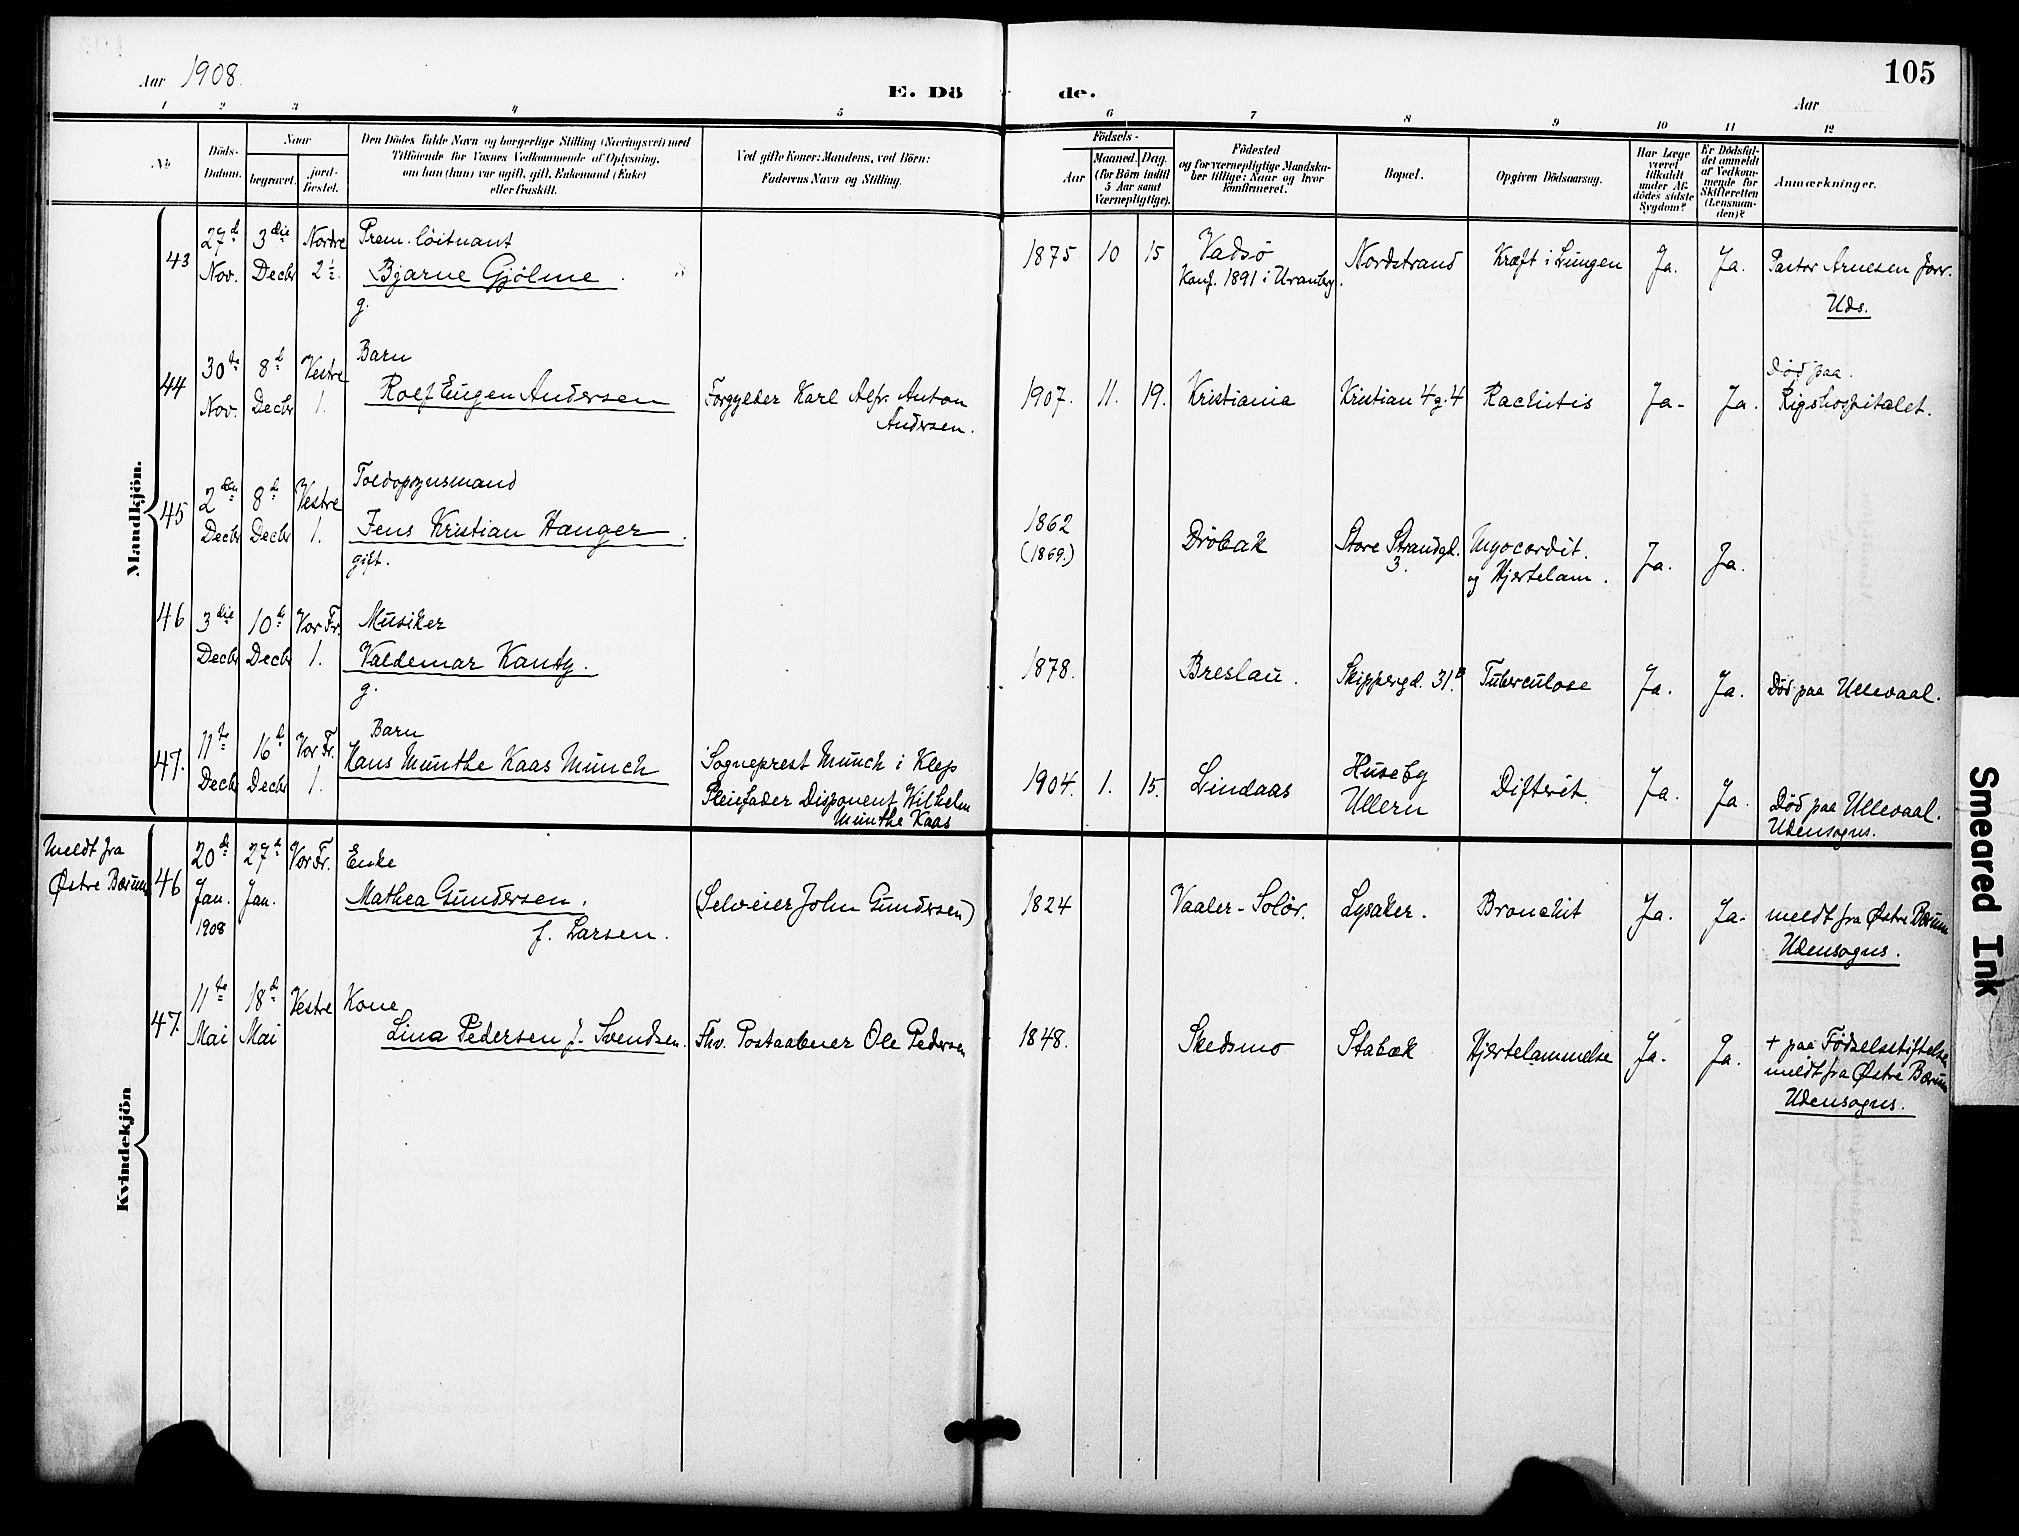 Aar 1908.
E. Dö
de.
105
Aar
1 2 3 4 5 6 7 8 9 10 11 12
No
Döds-
Datum.
Naar
begravet.
jord-
fæstet.
Den Dödes fulde Navn og borgerlige Stilling (Næringsvei) med
Tilföiende for Voxnes Vedkommende af Oplysning,
om han (hun) var ugift, gift, Enkemand (Enke)
eller fraskilt.
Ved gifte Koner: Mandens, ved Börn:
Faderens Navn og Stilling.
Födsels-
Aar
Maaned.
Dag.
(for Börn indtil
5 Aar samt
Værnepligtige).
Födested
og for værnepligtige Mandska-
ber tillige: Naar og hvor
konfirmeret.
Bopæl.
Opgiven Dödsaarsag.
Har Læge
været
tilkaldt
under Af-
dödes sidste
Sygdom?
Er Dödsfal-
det anmeldt
af Vedkom-
mende for
Skifteretten
(Lensman-
den)?
Anmærkninger.
Mandkjön.
43
27d
Nov.
3die
Decbr
Nordre
2½.
Prem. löitnant
Bjarne Gjölme.
g.
1875 10 15
Vadsö
Konf. 1891 i Uranbg.
Nordstrand
Kræft i Lungen
Ja.
Ja.
Pastor Arnesen forr.
Uds.
44
30te
Nov.
8d
Decbr
Vestre
1.
Barn
Rolf Eugen Andersen
Forgylder Karl Alfr. Anton
Andersen.
1907. 11. 19.
Kristiania
Kristian 4 g. 4
Rachitis
Ja.
Ja.
Död paa
Rigshospitalet.
45
2den
Decbr
8d
Decbr
Vestre
1.
Toldopsynsmand
Jens Kristian Hanger.
gift.
1862
(1869.)
Dröbak
Store Strandgd.
3.
Myocardit.
og Hjertelam.
Ja.
Ja.
46
3die
Decbr
10d
Decbr
Vor Fr.
1.
Musiker
Valdemar Kanty.
g.
1878.
Breslau.
Skippergd. 31B
Tuberculose
Ja.
Ja.
Död paa Ullevaal.
47.
11te
Decbr
16d
Decbr
Vor Fr.
1.
Barn
Hans Munthe Kaas Munch
Sogneprest Munch i Klep
Pleiefader Disponent Wilhelm
Munthe Kaas
1904. 1. 15.
Lindaas
Huseby
Ullern
Difterit.
Ja.
Ja.
Död paa Ullevaal.
Udensogns.
Kvindekjön
Meldt fra
Østre Bærum
46
20de
Jan.
1908
27d
Jan.
Vor Fr.
Enke
Mathea Gundersen.
f. Larsen.
(Selveier John Gundersen)
1824
Vaaler - Solör.
Lysaker.
Bronchit
Ja.
Ja.
meldt fra Østre Bærum
Udensogns.
47.
11te
Mai
18d
Mai
Vestre
Kone
Lina Pedersen f. Svendsen.
Fhv. Postaabner Ole Pedersen
1848.
Skedsmo
Stabæk
Hjertelammelse
Ja.
Ja.
+ paa Födselsstiftelse
meldt fra Østre Bærum
Udensogns.
Smeared Ink